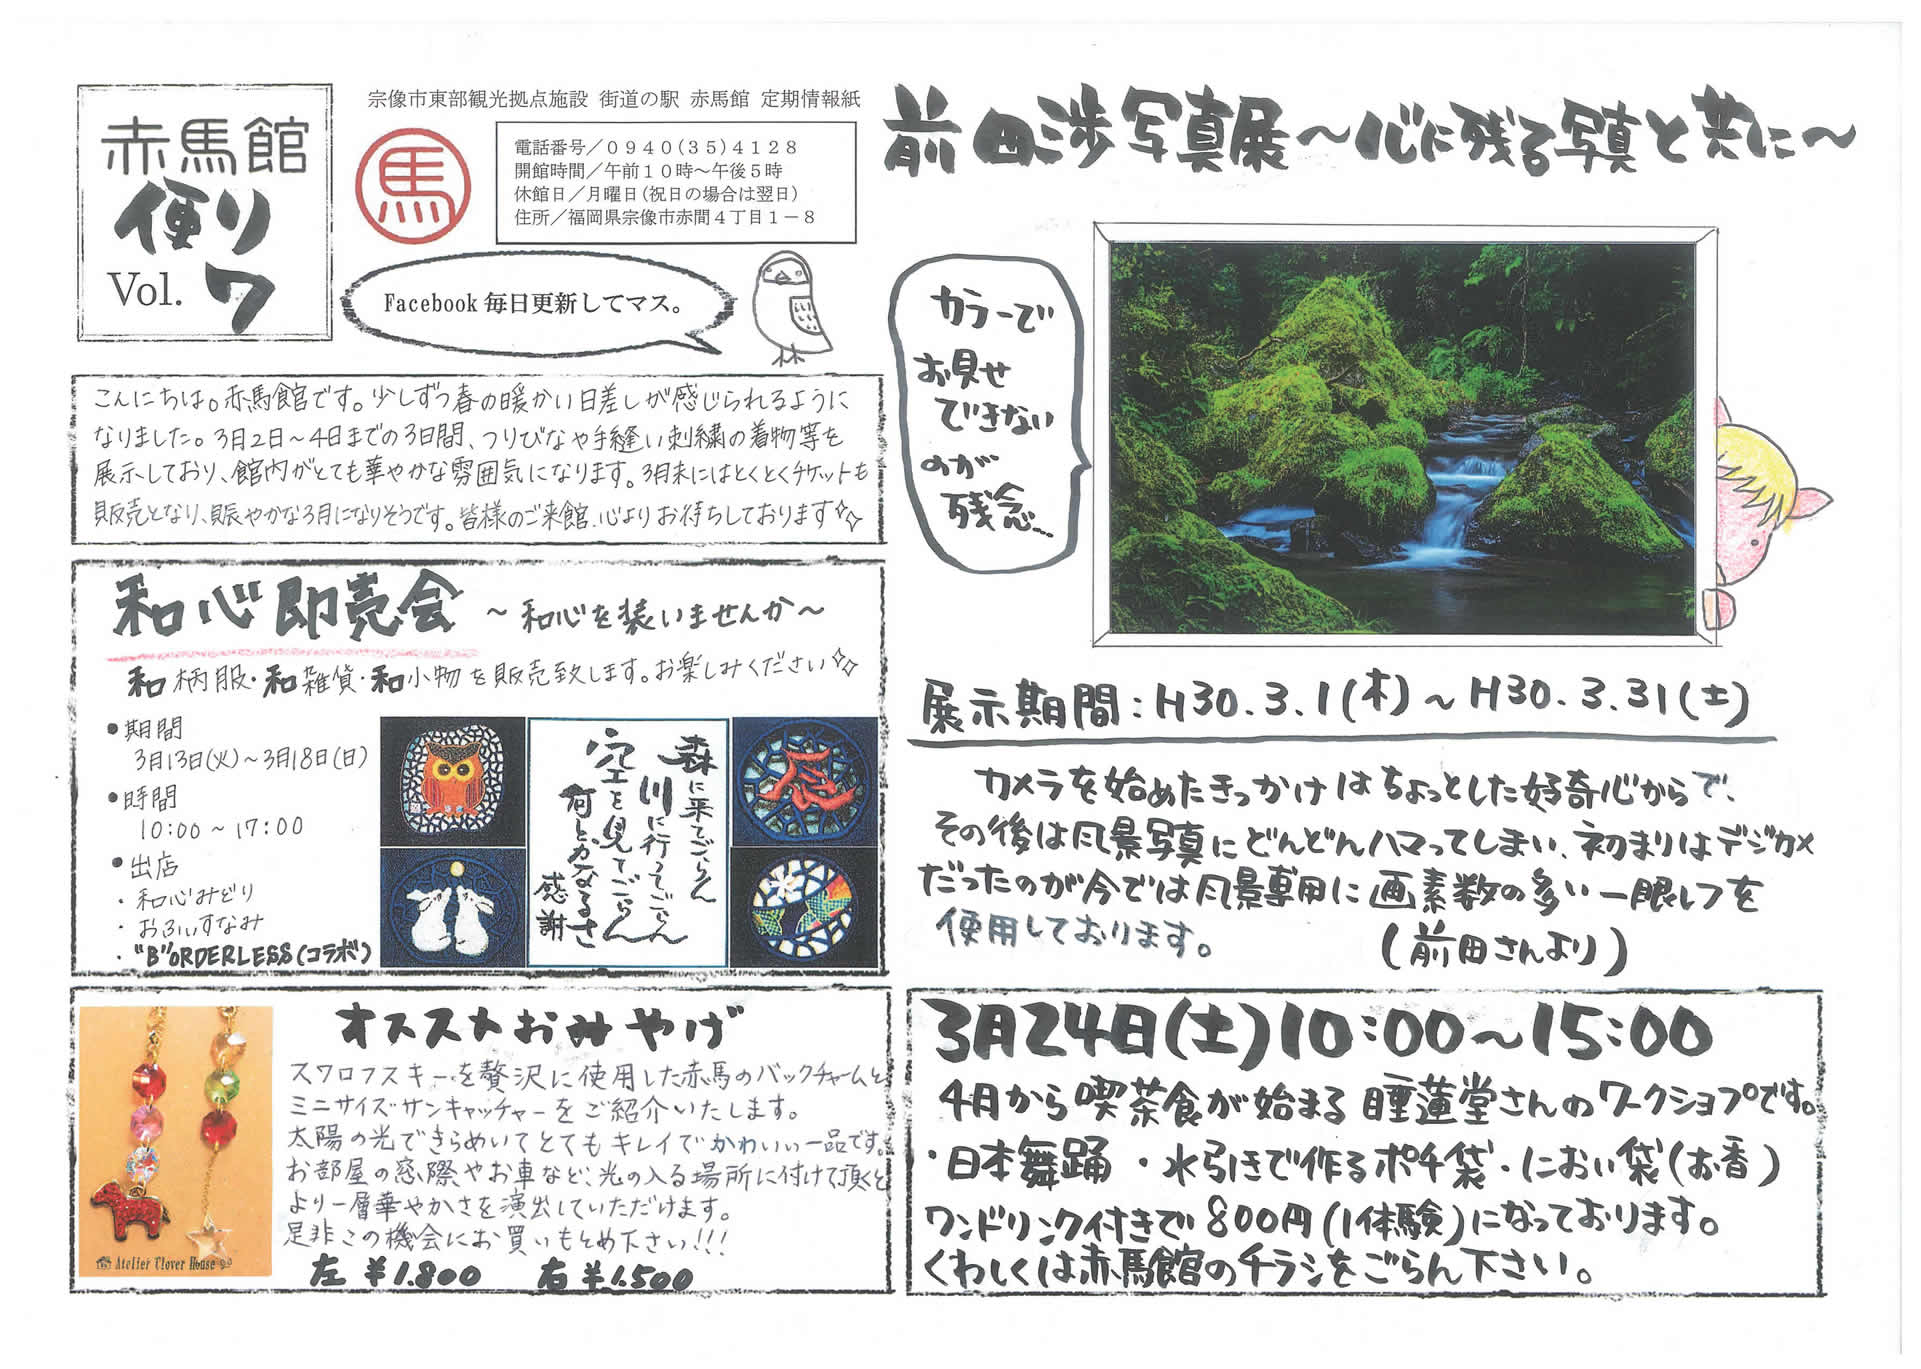 赤馬館
便り
Vol. 7
宗像市東部観光拠点施設 街道の駅 赤馬館 定期情報紙
馬
電話番号/0940(35)4128
開館時間/午前10時~午後5時
休館日/月曜日(祝日の場合は翌日)
住所/福岡県宗像市赤間4丁目1-8
Facebook 毎日更新してマス。
こんにちは。赤馬館です。少しずつ春の暖かい日差しが感じられるように
なりました。3月2日~4日までの3日間、つりびなや手縫い刺繍の着物等を
展示しており、館内がとても華やかな雰囲気になります。3月末にはとくとくチケットも
販売となり、賑やかな3月になりそうです。皆様のご来館、心よりお待ちしております
和心即売会 ~和心を装いませんか~
和柄服・和雑貨・和小物を販売致します。お楽しみください
●期間
3月13日(火)~3月18日(日)
●時間
10:00~17:00
●出店
・和心みどり
・おふぃすなみ
・"B"ORDERLESS(コラボ)
森に来てごらん
川に行ってごらん
空を見てごらん
何とかなるさ
感謝
辰
オススメおみやげ
スワロフスキーを贅沢に使用した赤馬のバックチャームと
ミニサイズサンキャッチャーをご紹介いたします。
太陽の光できらめいてとてもキレイでかわいい一品です。
お部屋の窓際やお車など、光の入る場所に付けて頂くと
より一層華やかさを演出していただけます。
是非この機会にお買いもとめ下さい!!!
左 ¥1.800 右 ¥1.500
Atelier Clover House
前田渉写真展~心に残る写真と共に~
カラーで
お見せ
できない
のが
残念...
展示期間:H30.3.1(木)~H30.3.31(土)
カメラを始めたきっかけはちょっとした好奇心からで、
その後は風景写真にどんどんハマってしまい、初まりはデジカメ
だったのが今では風景専用に画素数の多い一眼レフを
使用しております。 (前田さんより)
3月24日(土)10:00~15:00
4月から喫茶食が始まる睡蓮堂さんのワークショップです。
・日本舞踊 ・水引きで作るポチ袋・におい袋(お香)
ワンドリンク付きで800円(1体験)になっております。
くわしくは赤馬館のチラシをごらん下さい。